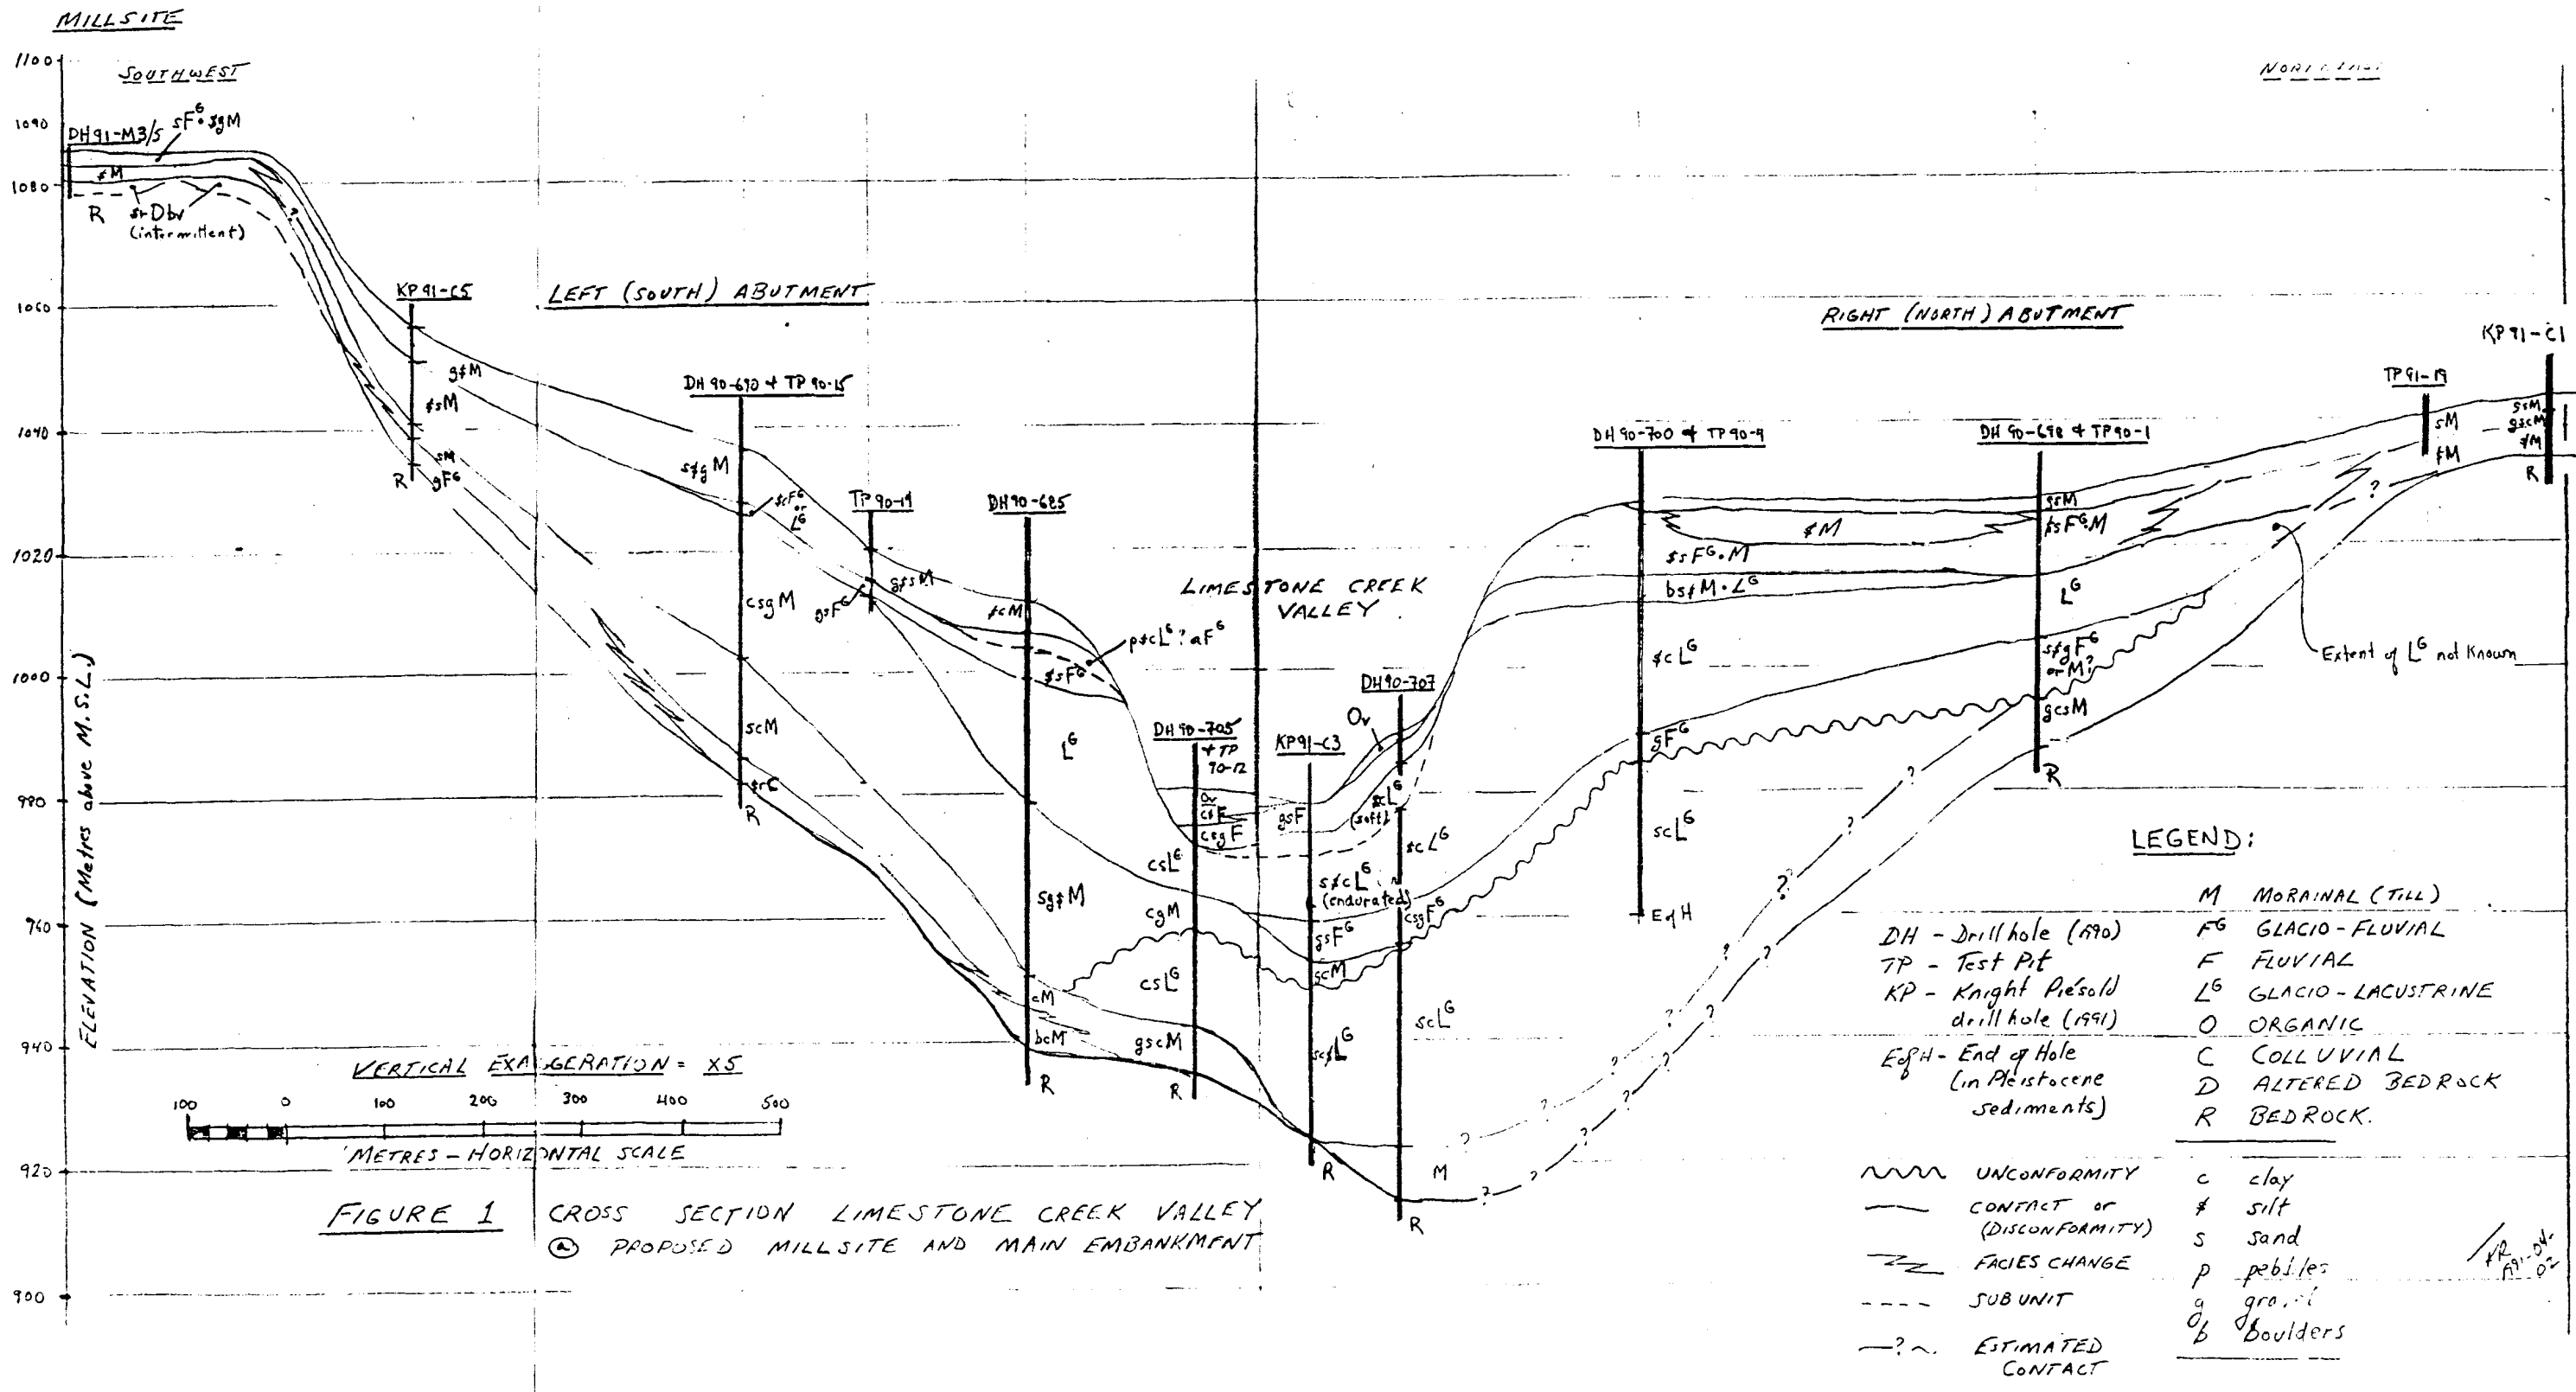 MILLSITE
SOUTHWEST
1100
1090
1080
1060
1040
1020
1000
980
960
940
920
900
ELEVATION (Metres above M.S.L.)
DH91-M3/5
sF^G·sgM
$M
R
srDbv
(intermittent)
KP 91-C5
LEFT (SOUTH) ABUTMENT
g$M
$sM
sM
gF^G
R
DH 90-690 + TP 90-15
s$gM
$cF^G
or
L^G
csgM
scM
$rC
R
TP 90-19
g$sM
gsF^G
DH 90-685
$cM
p$cL^G? aF^G
$sF^G
L^G
sg$M
cM
bcM
R
LIMESTONE CREEK
VALLEY
DH 90-705
+ TP
90-12
Ov
csF
csgF
csL^G
cgM
csL^G
gscM
R
KP91-C3
gsF
s$cL^G
(endurated)
gsF^G
gcM
sc$L^G
R
DH90-707
Ov
$cL^G
(soft)
$cL^G
csgF^G
scL^G
M
R
RIGHT (NORTH) ABUTMENT
DH 90-700 + TP 90-9
$M
$sF^G·M
bs$M·L^G
$cL^G
gF^G
scL^G
EofH
DH 90-698 + TP 90-1
gsM
$sF^G·M
L^G
s$gF^G
or M?
gcsM
R
TP91-19
sM
$M
KP 91-C1
gsM
gscM
$M
R
Extent of L^G not known
VERTICAL EXAGGERATION = X5
100 0 100 200 300 400 500
METRES - HORIZONTAL SCALE
FIGURE 1 CROSS SECTION LIMESTONE CREEK VALLEY
@ PROPOSED MILLSITE AND MAIN EMBANKMENT
LEGEND:
DH - Drillhole (1990)
TP - Test Pit
KP - Knight Piésold
drill hole (1991)
EofH - End of Hole
(in Pleistocene
sediments)
M MORAINAL (TILL)
F^G GLACIO-FLUVIAL
F FLUVIAL
L^G GLACIO-LACUSTRINE
O ORGANIC
C COLLUVIAL
D ALTERED BEDROCK
R BEDROCK.
UNCONFORMITY
CONTACT or
(DISCONFORMITY)
FACIES CHANGE
SUBUNIT
—?~ ESTIMATED
CONTACT
c clay
$ silt
s sand
p pebbles
g gravel
b boulders